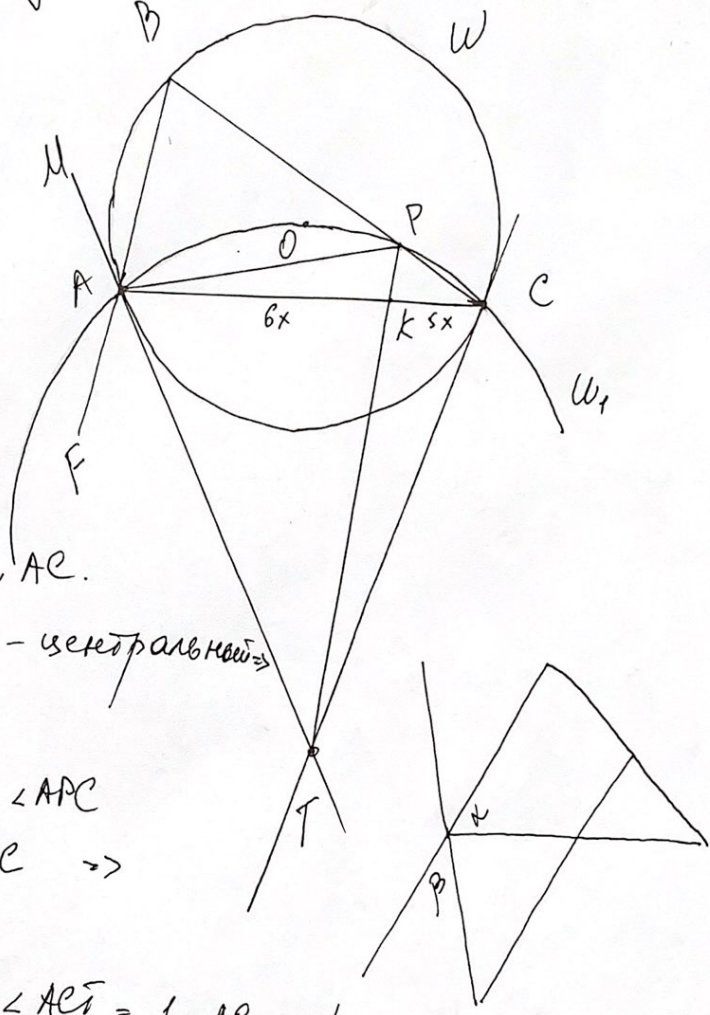 B
W
M
A
O
P
C
6x
K
5x
W₁
F
, AC.
– центральный =>
∠APC
T
C =>
α
β
∠ACT =